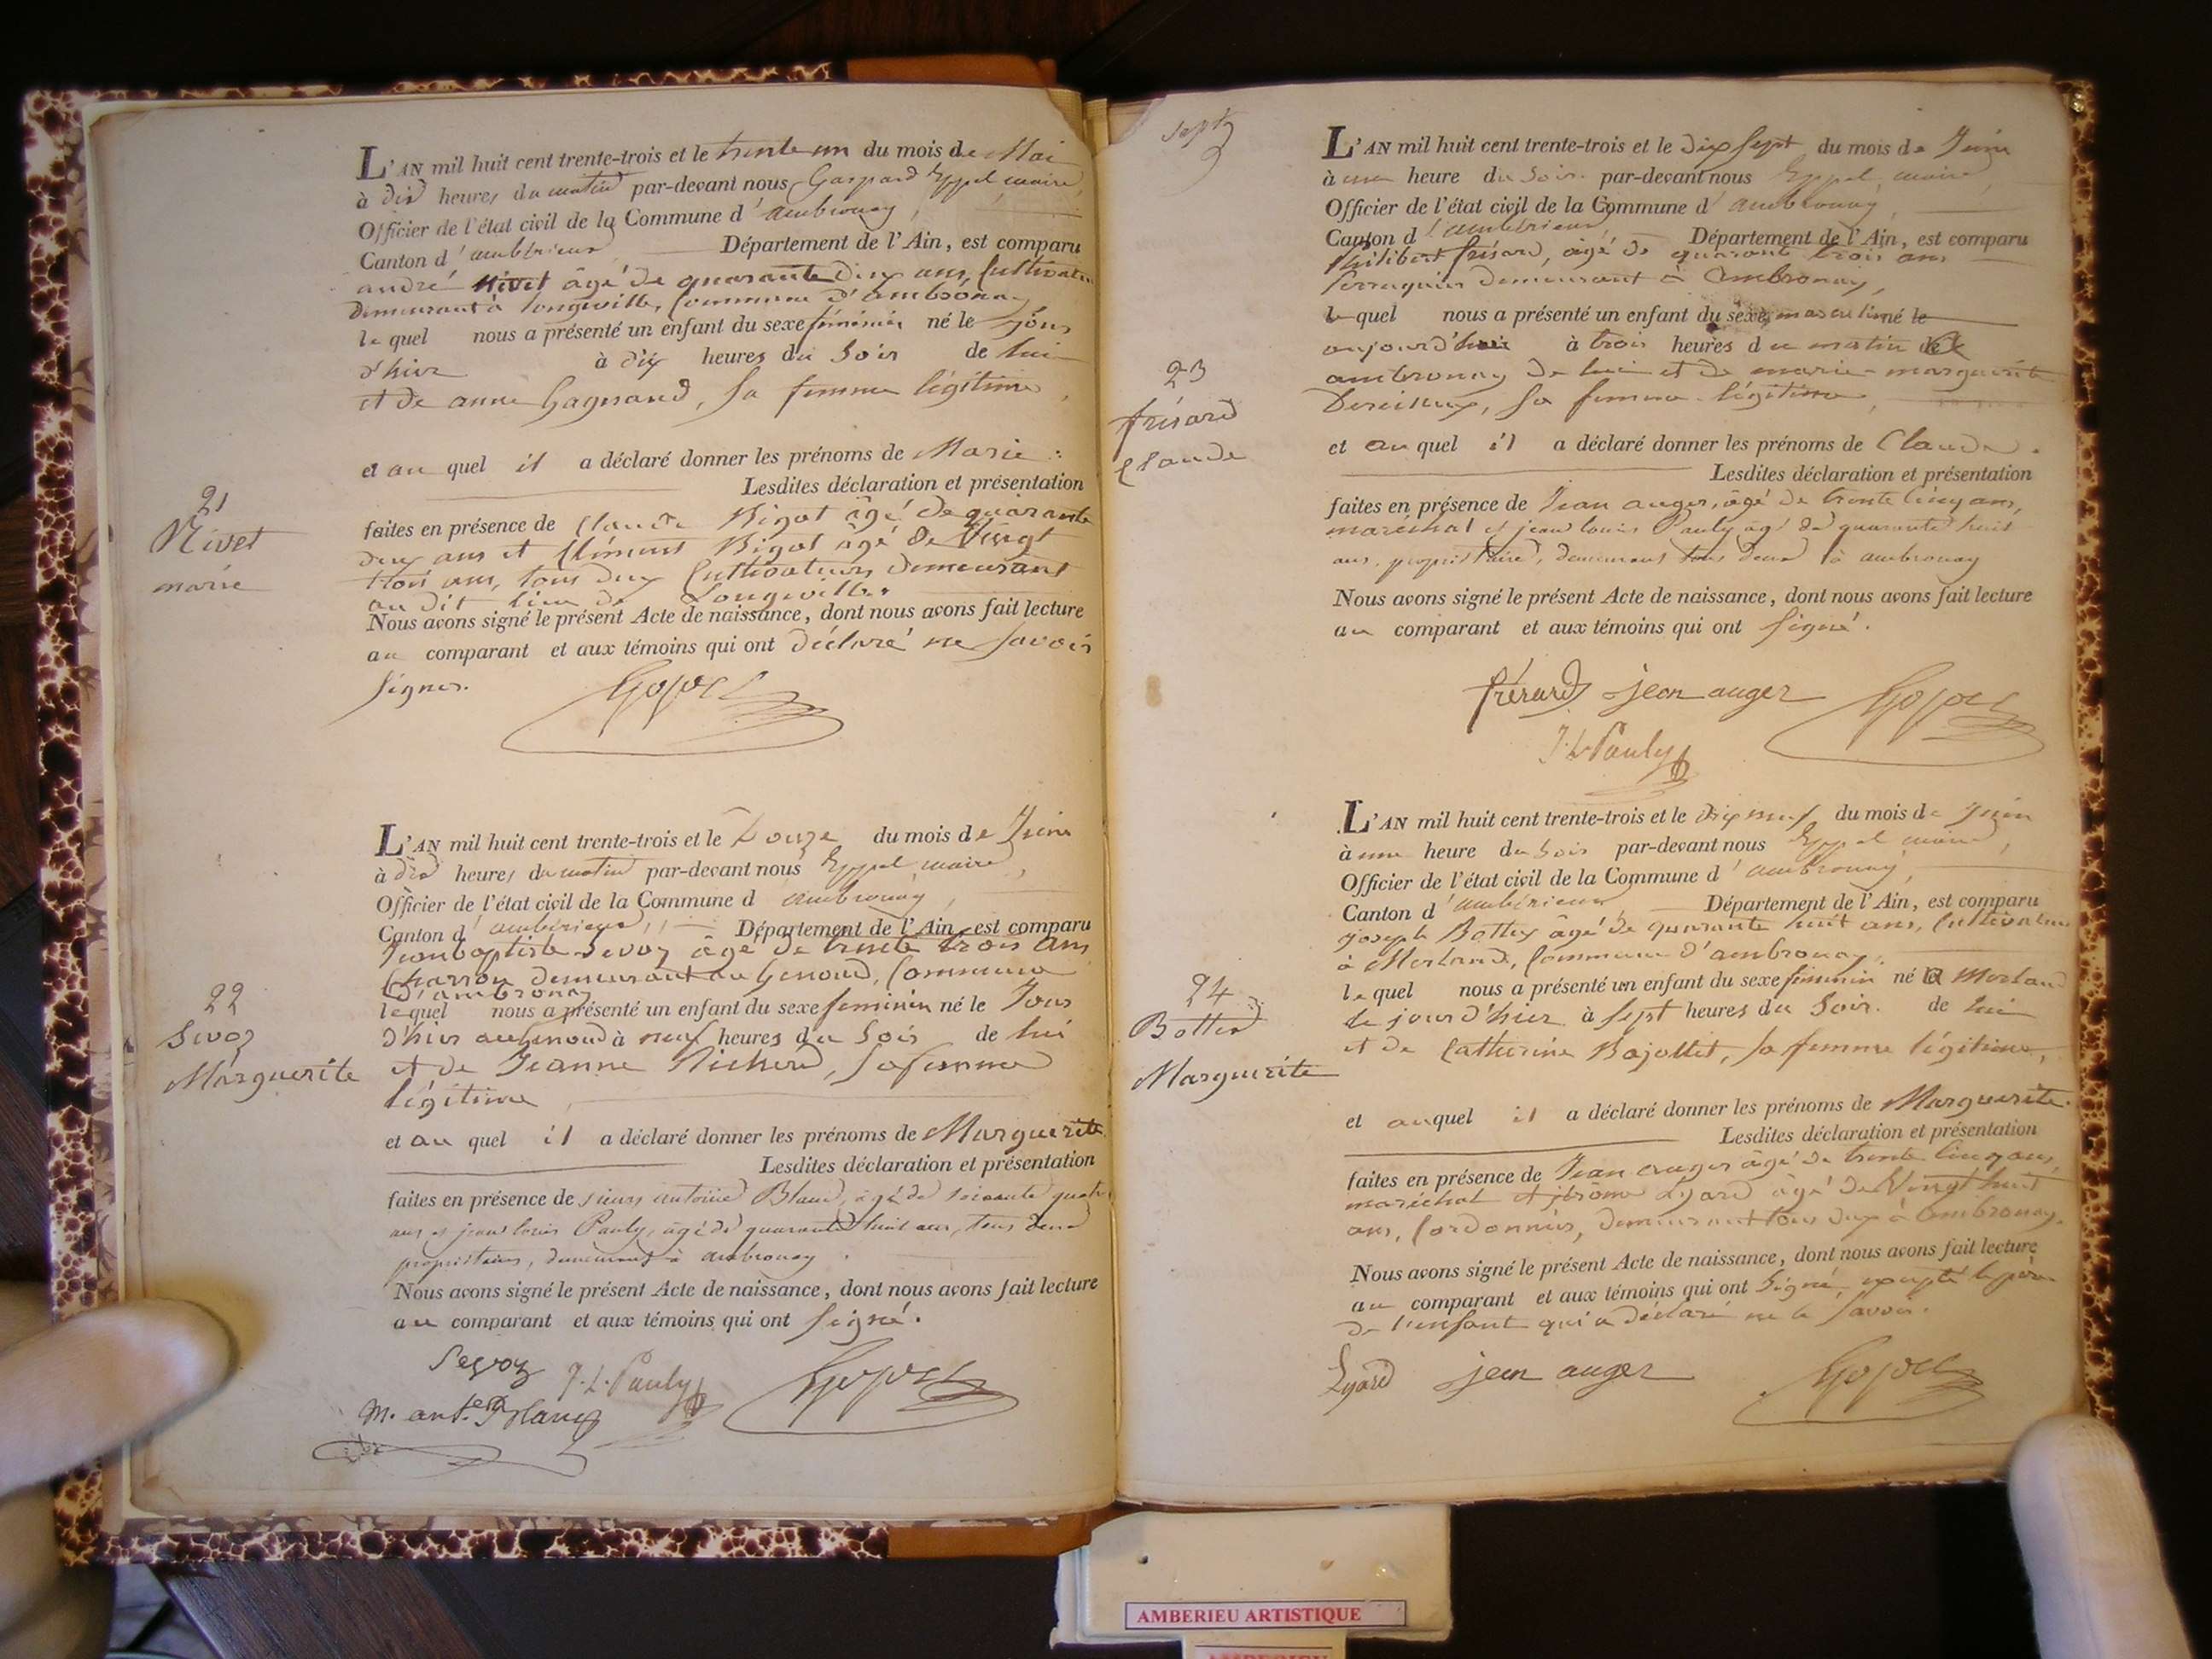 L'AN mil huit cent trente-trois et le trente un du mois de Mai
à dix heures du matin par-devant nous Gaspard Eyppel, maire,
Officier de l'état civil de la Commune d'ambronay,
Canton d'ambérieux Département de l'Ain, est comparu
andré Nivet âgé de quarante deux ans, Cultivateur
demeurant à longeville, Commune d'ambronay
le quel nous a présenté un enfant du sexe féminin né le jour
d'hier à dix heures du Soir de lui
et de anne Gagnaud, Sa femme légitime,
et au quel il a déclaré donner les prénoms de Marie.
Lesdites déclaration et présentation
21
Nivet
marie
faites en présence de Claude Bigot âgé de quarante
deux ans et Clément Bigot âgé de Vingt
trois ans, tous deux Cultivateurs demeurant
au dit lieu de Longeville.
Nous avons signé le présent Acte de naissance, dont nous avons fait lecture
au comparant et aux témoins qui ont déclaré ne Savoir
Signer.
L'AN mil huit cent trente-trois et le Douze du mois de Juin
à dix heures du matin par-devant nous Eyppel maire,
Officier de l'état civil de la Commune d ambronay,
Canton d'ambérieux, Département de l'Ain, est comparu
Jean baptiste Sevoz âgé de trente trois ans
Charron demeurant au Genoud, Commune
d'ambronay
le quel nous a présenté un enfant du sexe feminin né le Jour
d'hier au Genoud à neuf heures du Soir de lui
22
Sevoz
Marguerite
et de Jeanne Richerd, Sa femme
légitime
et au quel il a déclaré donner les prénoms de Marguerite
Lesdites déclaration et présentation
faites en présence de sieurs antoine Blanc, âgé de soixante quatre
ans et jean louis Pauly, âgé de quarante huit ans, tous deux
propriétaires, demeurant à ambronay.
Nous avons signé le présent Acte de naissance, dont nous avons fait lecture
au comparant et aux témoins qui ont Signé.
Sevoz J. L. Pauly
m. ant. Blanc
Sept
L'AN mil huit cent trente-trois et le dix Sept du mois de Juin
à une heure du Soir par-devant nous Eyppel, maire,
Officier de l'état civil de la Commune d'ambronay,
Canton d'ambérieux, Département de l'Ain, est comparu
Philibert frérard, âgé de quarante trois ans
Serrurier demeurant à Ambronay,
le quel nous a présenté un enfant du sexe masculin né le
aujourd'hui à trois heures du matin
ambronay de lui et de marie-marguerite
23
frérard
Claude
Sa femme légitime,
et au quel il a déclaré donner les prénoms de Claude.
Lesdites déclaration et présentation
faites en présence de Jean auger, âgé de trente cinq ans,
maréchal et jean louis Pauly âgé de quarante huit
ans, propriétaire, demeurans tous deux à ambronay
Nous avons signé le présent Acte de naissance, dont nous avons fait lecture
au comparant et aux témoins qui ont Signé.
frérard jean auger
J. L. Pauly
L'AN mil huit cent trente-trois et le dix neuf du mois de Juin
à une heure du Soir par-devant nous Eyppel maire,
Officier de l'état civil de la Commune d'ambronay,
Canton d'ambérieux Département de l'Ain, est comparu
joseph Bottex âgé de quarante huit ans, Cultivateur
à Merland, Commune d'ambronay,
le quel nous a présenté un enfant du sexe féminin né à Merland
le jour d'hier à Sept heures du Soir. de lui
24
Bottex
Marguerite
et de Catherine Bajollet, Sa femme légitime,
et au quel il a déclaré donner les prénoms de Marguerite.
Lesdites déclaration et présentation
faites en présence de Jean auger âgé de trente cinq ans
maréchal et jérôme Lyard âgé de Vingt huit
ans, Cordonnier, demeurant tous deux à Ambronay.
Nous avons signé le présent Acte de naissance, dont nous avons fait lecture
au comparant et aux témoins qui ont Signé, excepté le père
de l'enfant qui a déclaré ne le Savoir.
Lyard jean auger
AMBERIEU ARTISTIQUE